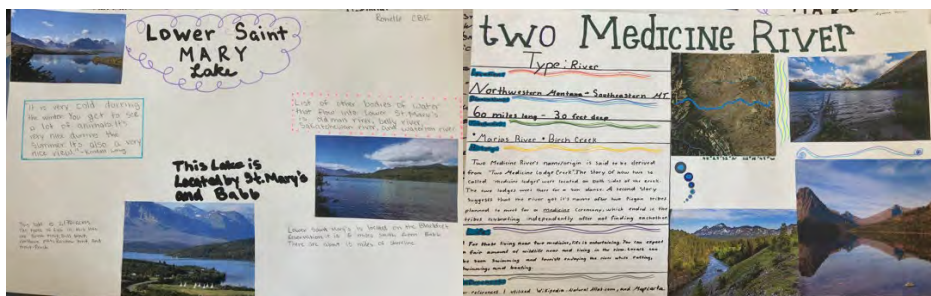 Lower Saint
MARY
Lake
It is very cold during
the winter. You get to see
a lot of animals. It's
very nice during the
Summer. It's also a very
nice view."
List of other bodies of water
that flow into Lower St. Mary's
is old man river, belly river,
Saskatchewan river, and waterton river
This Lake is
Located by St. Mary's
and Babb
Lower Saint Mary's is located on the Blackfeet
Reservation, it is miles south from Babb.
There are about 13 miles of shoreline.
two Medicine River
Type: River
Northwestern Montana - Southeastern MT
60 miles long - 30 feet deep
• Marias River • Birch Creek
Two Medicine River's name/origin is said to be derived
from "Two Medicine Lodge Creek". The story of how two so
called "medicine lodges" were located on both sides of the creek.
The two lodges were there for a sun dance. A second story
suggests that the river got it's name after two Piegan tribes
planned to meet for a medicine ceremony, which ended in the
tribes celebrating independently after not finding eachother
For those living near two medicine, life is entertaining. You can expect
a fair amount of wildlife near and living in the river. Locals can
be seen swimming and tourists enjoying the river while rafting,
swimming and boating.
references I utilized. Wikipedia, Natural Atlas.com, and